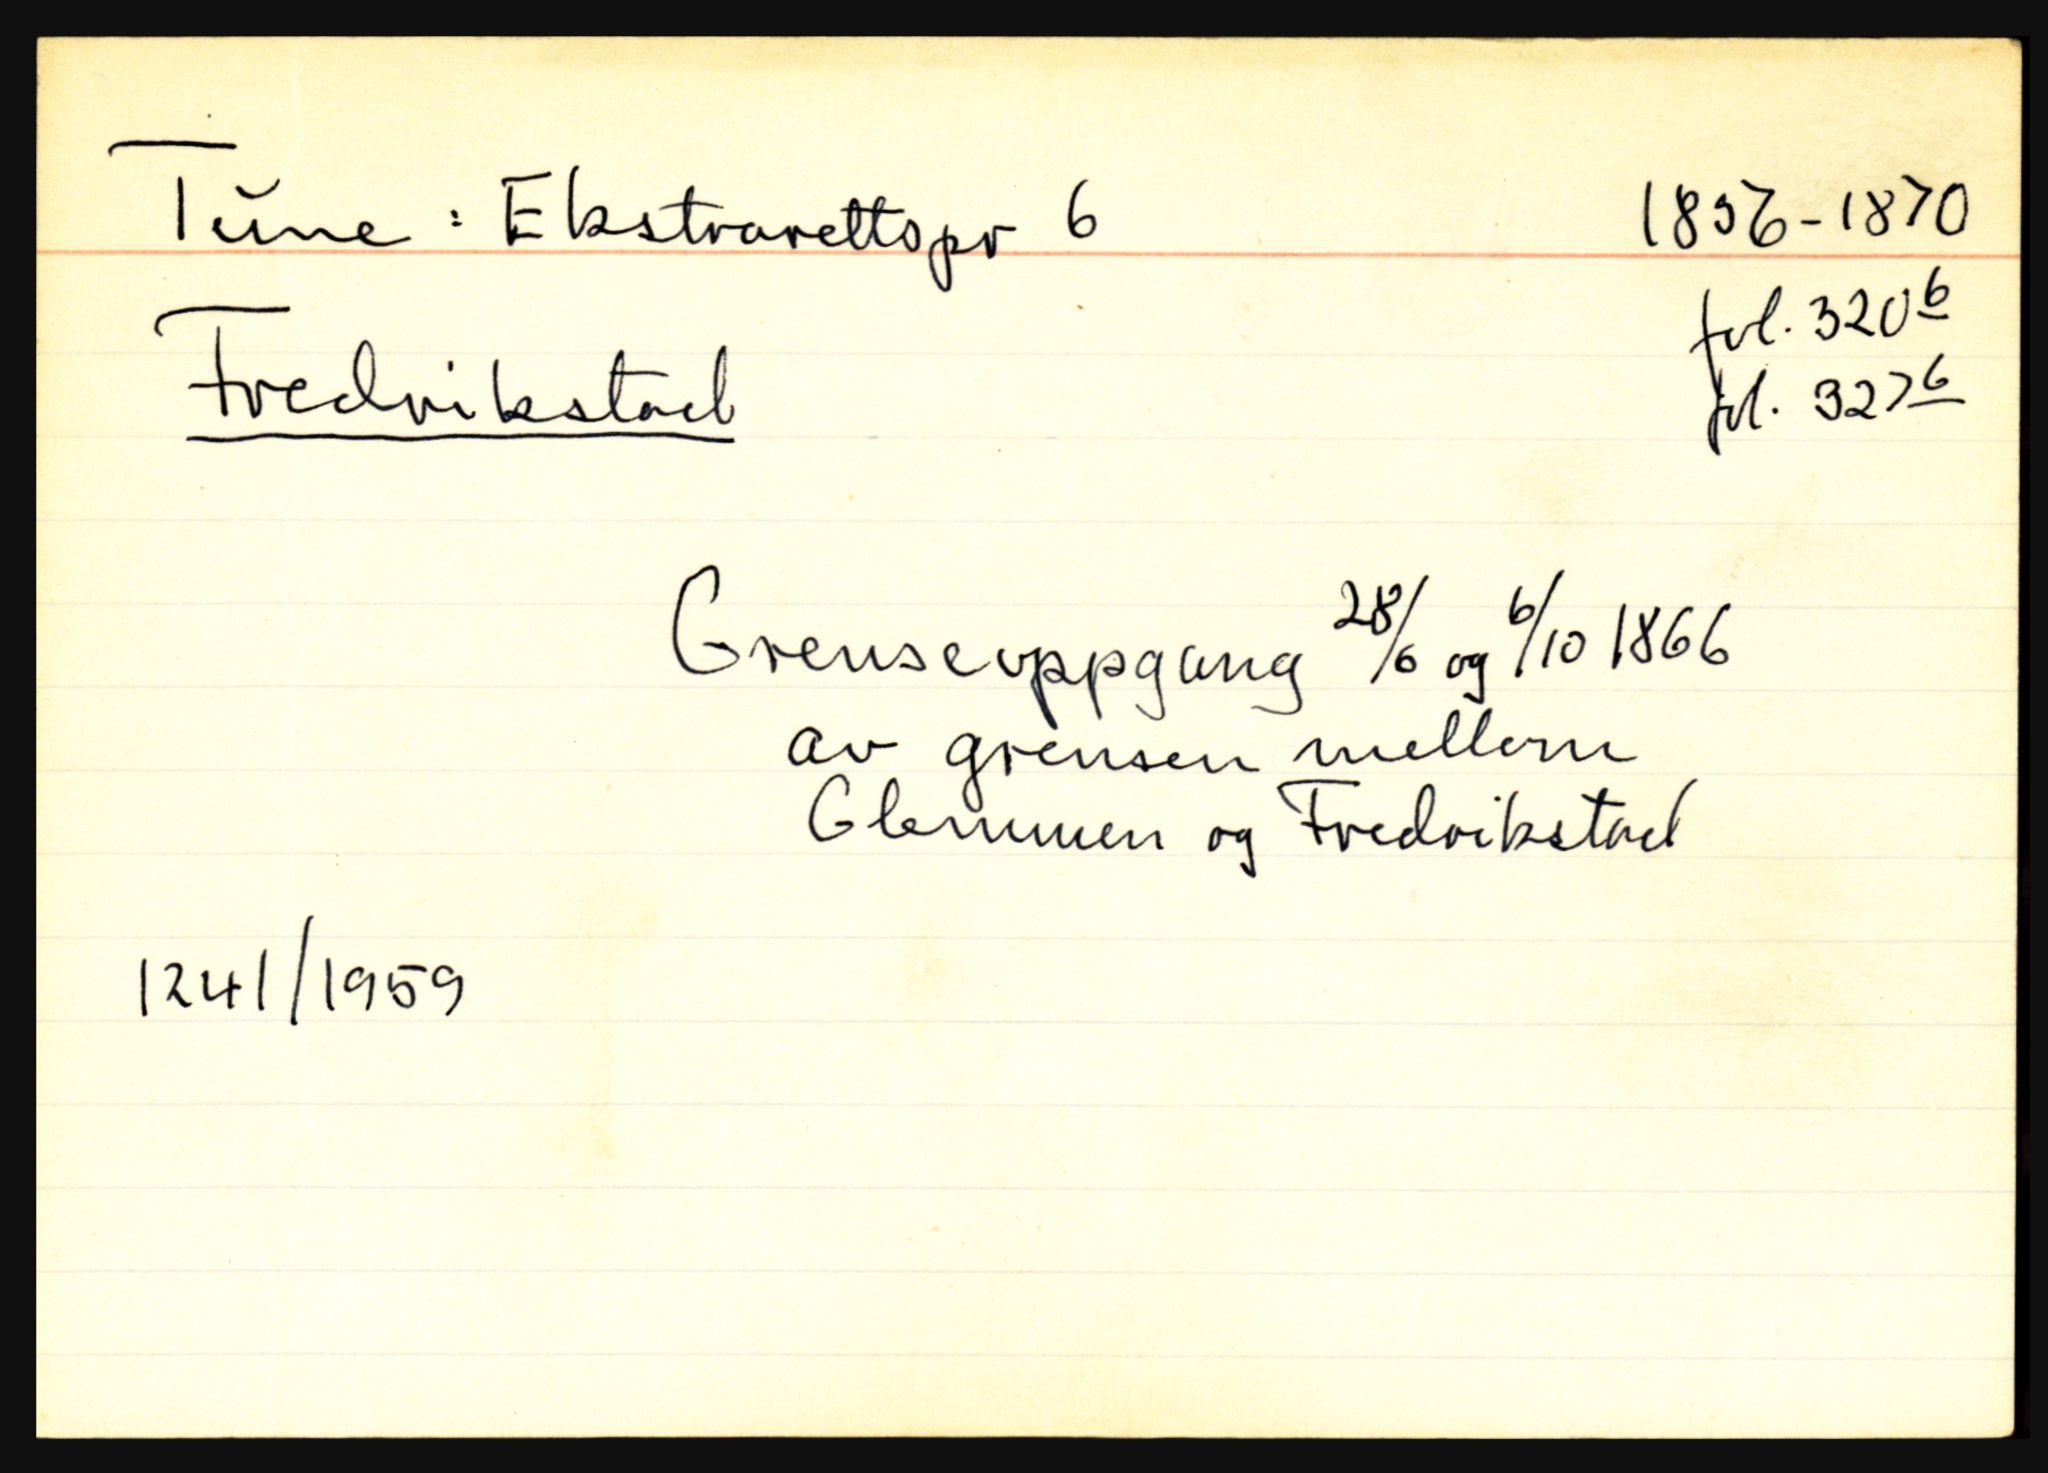 Tune : Ekstrarettspr 6 1856-1870
fol. 320b
Fredrikstad fol. 327b
Grenseoppgang 28/6 og 6/10 1866
av grensen mellom
Glemmen og Fredrikstad
1241/1959